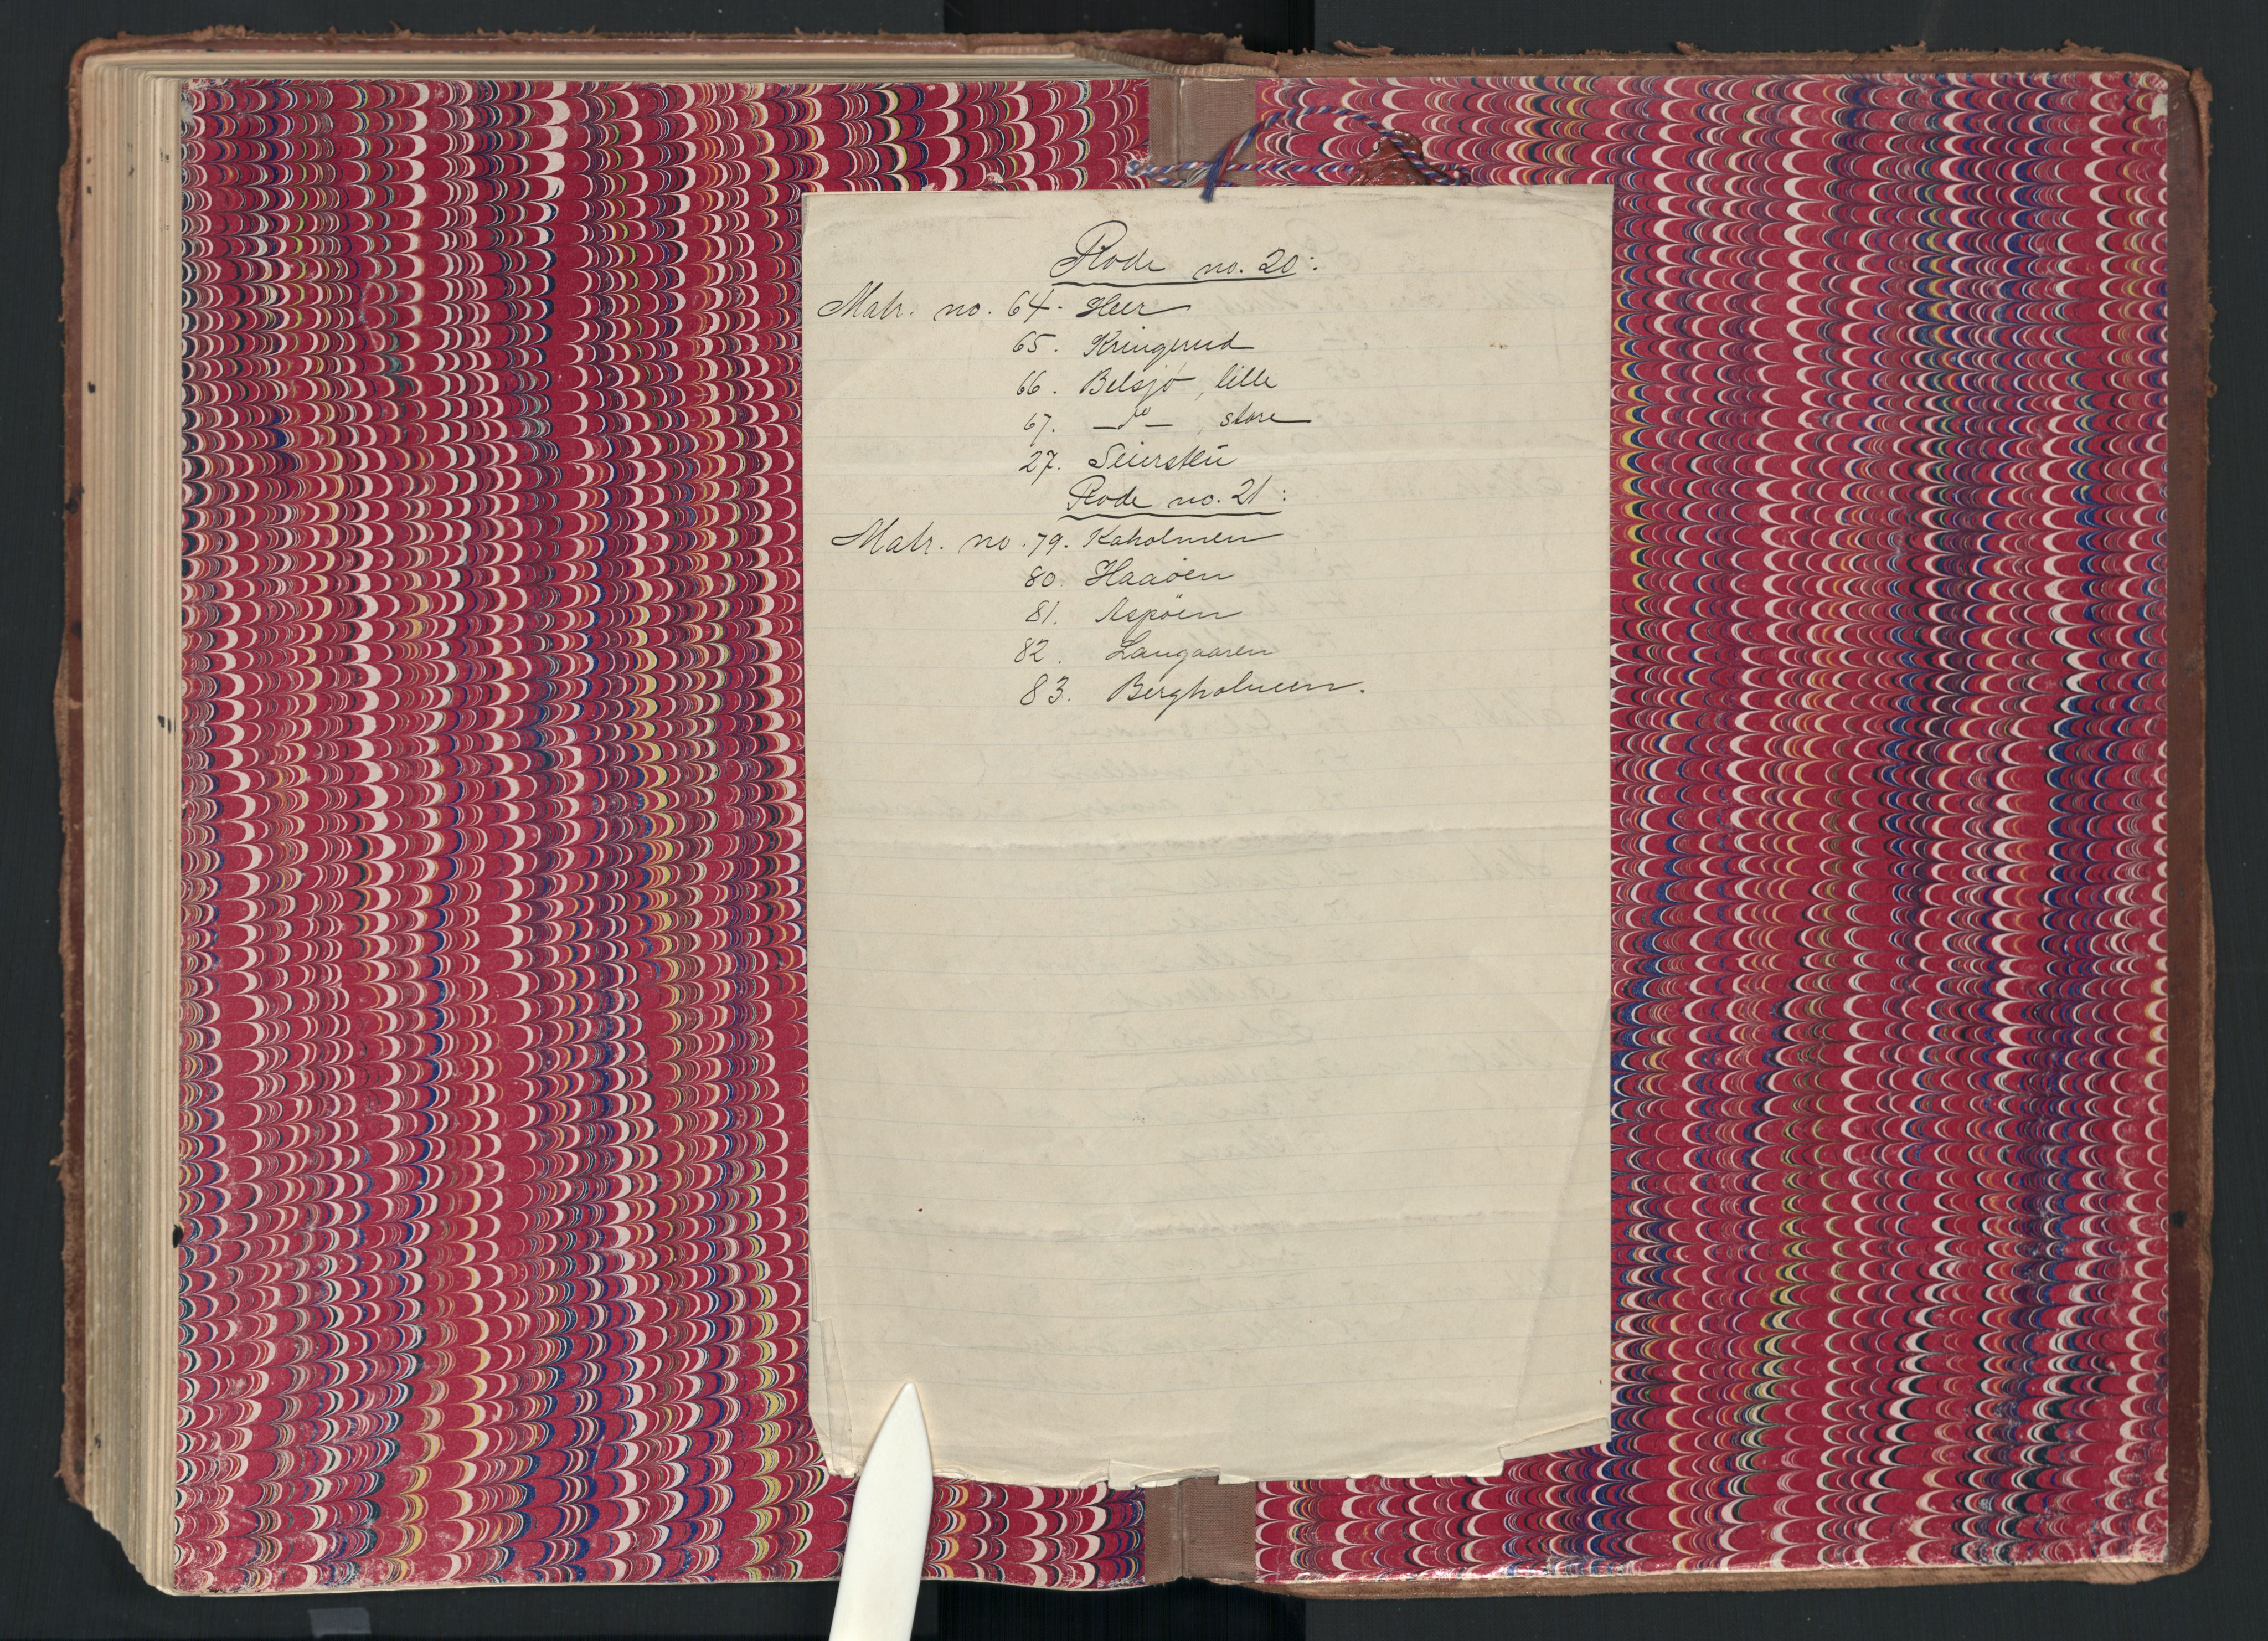 Rode no. 20:
Matr. no. 64. Heer
65. Kringerud
66. Belsjø, lille
67. —do— , store
27. Seiersten
Rode no. 21:
Matr. no. 79. Kaholmen
80. Haaøen
81. Aspøen
82. Langaaren
83. Bergholmen.